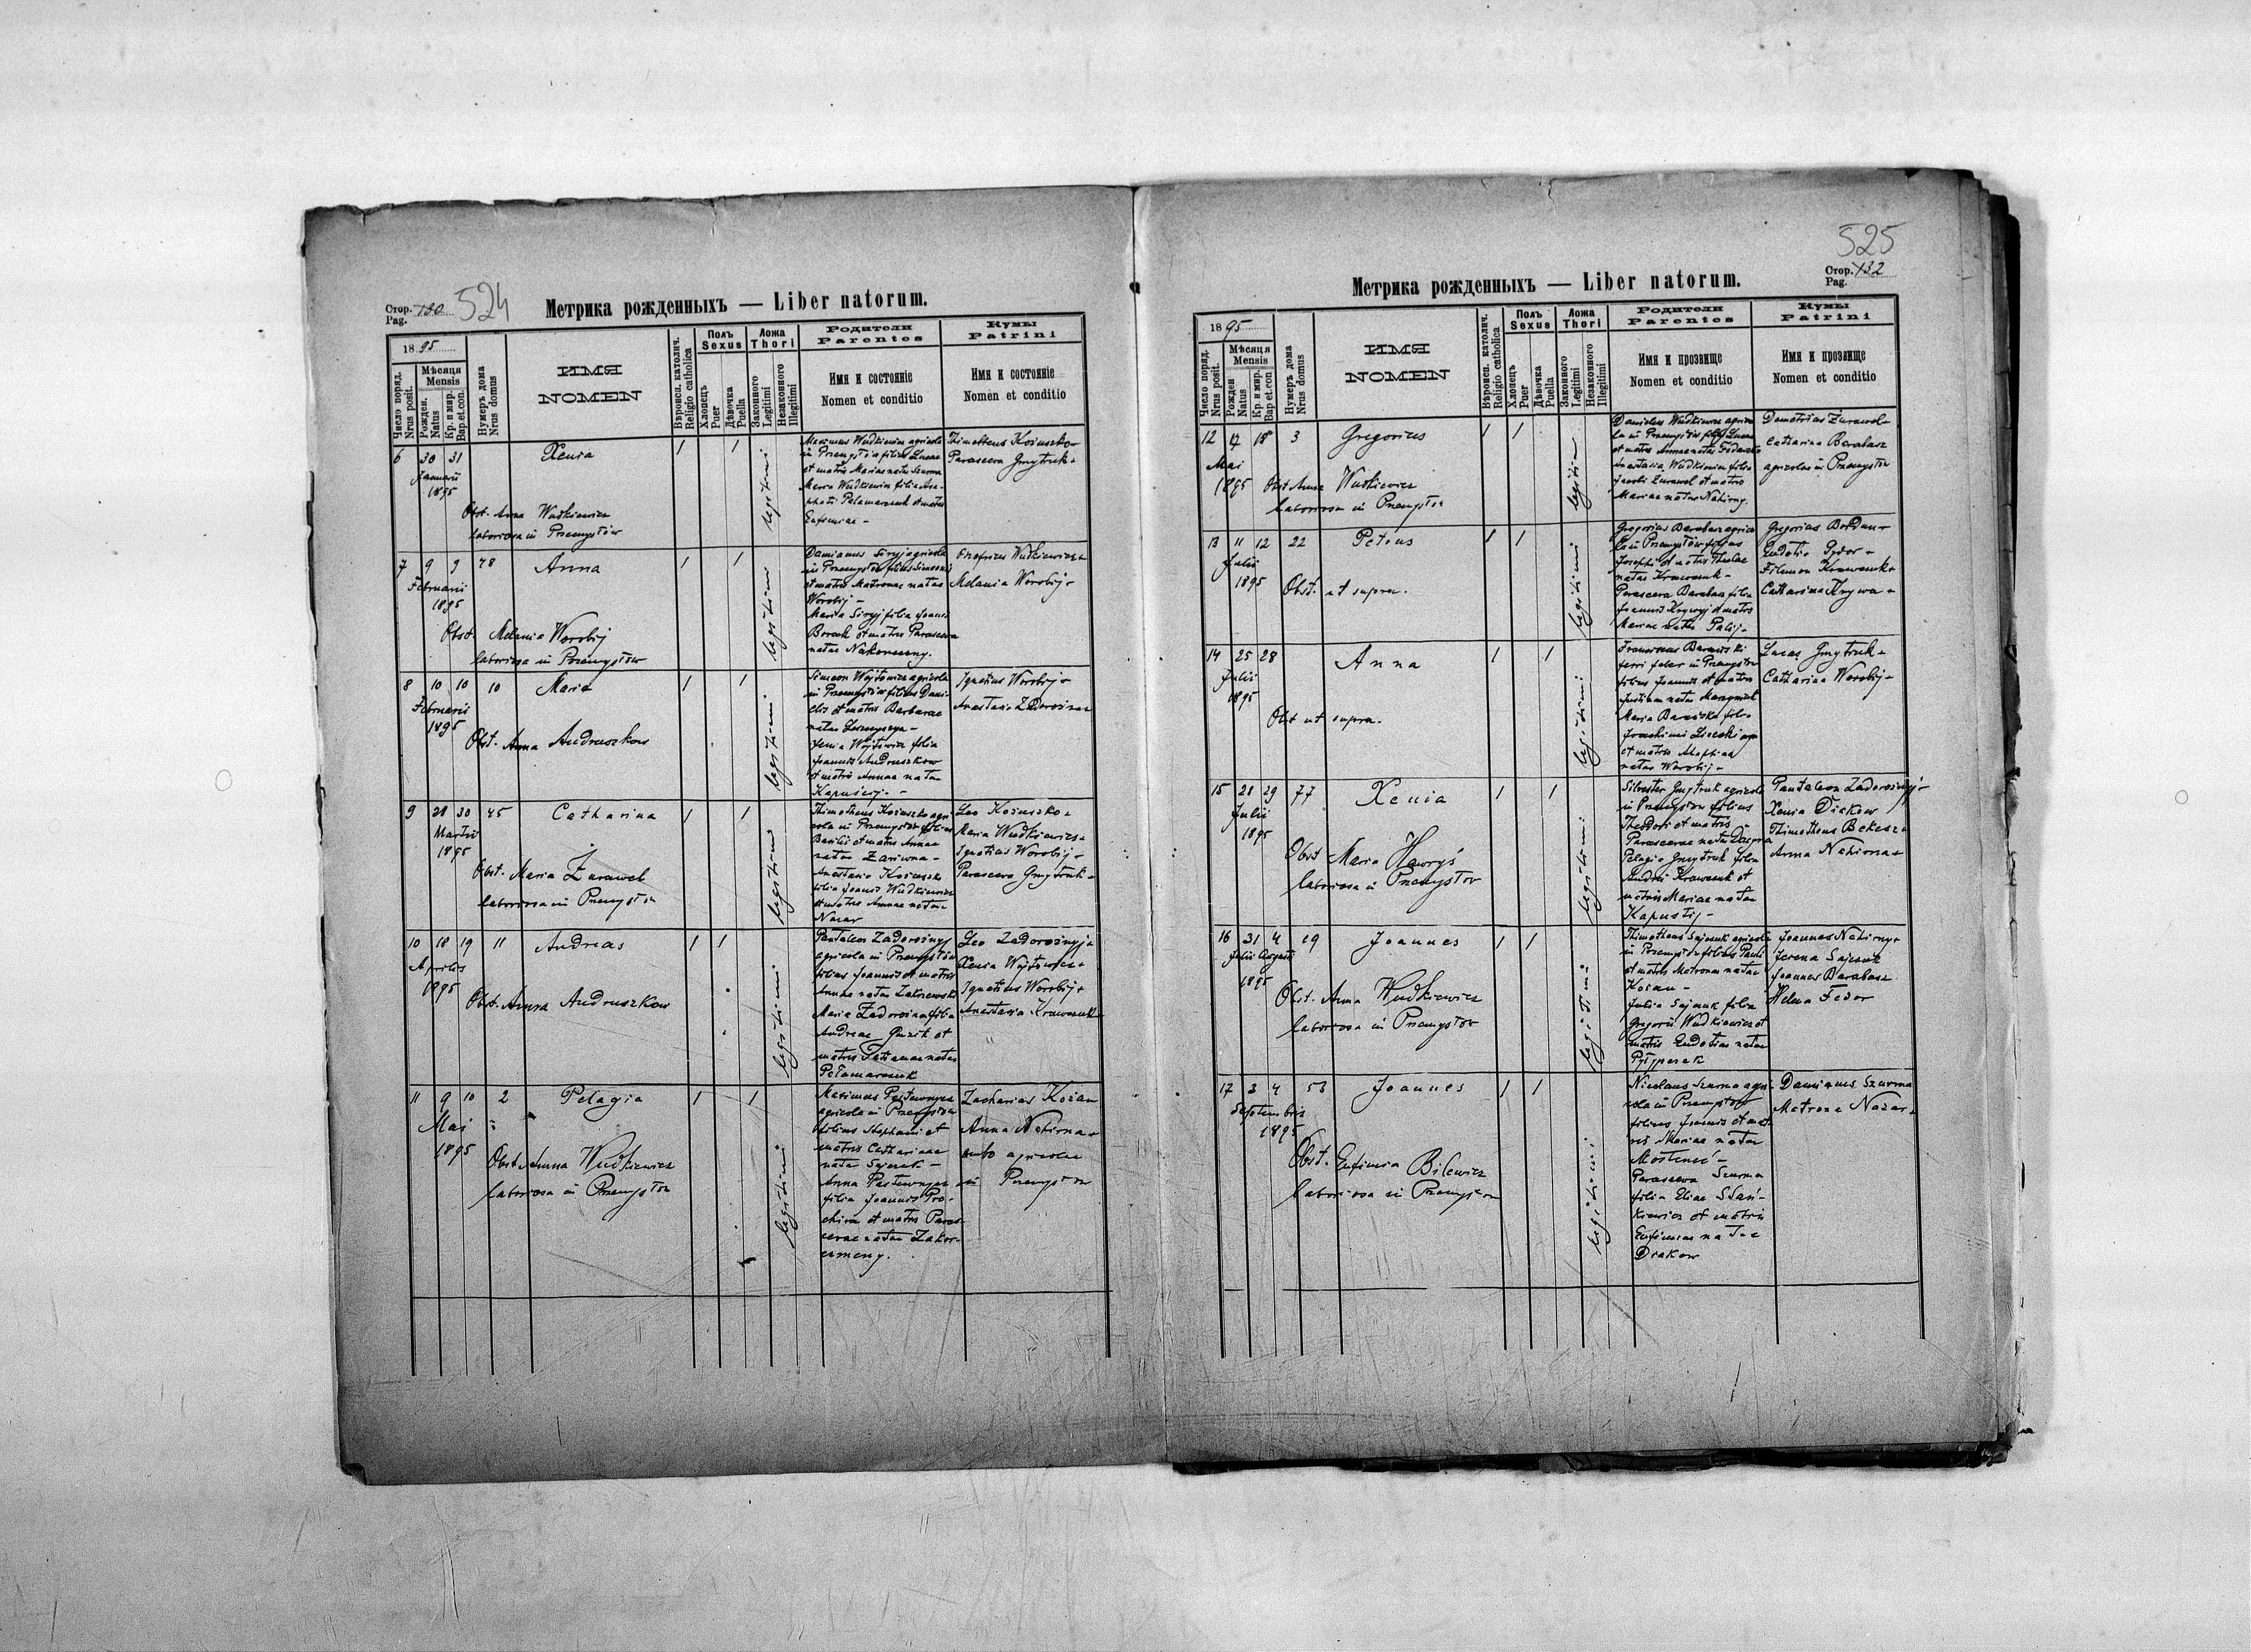 Стор. 130 524
Pag.
Метрика рожденныхъ — Liber natorum.
1895
Число поряд.
Nrus posit.
Мѣсяця
Mensis
Рожден.
Natus
Кр. и мир.
Bap et con.
Нумеръ дома
Nrus domus
ИМЯ
NOMEN
Вѣроисп. католич.
Religio catholica
Полъ
Sexus
Хлопець
Puer
Дѣвочка
Puella
Ложа
Thori
Законного
Legitimi
Незаконного
Illegitimi
Родители
Parentes
Имя и состояніе
Nomen et conditio
Кумы
Patrini
Имя и состояніе
Nomen et conditio
6 30 31 Xenia 1 1 legitimi
Januarii
1895
Obst. Anna Wudkiewicz
laboriosa in Przemysłów
Maximus Wudkiewicz agricola
in Przemysłów filius Lucae
et matris Mariae natae Szurma
Maria Wudkiewicz filia Aga-
phati Pelamarczuk et matris
Eufimiae -
Thimotheus Kożuszko
Parasceva Gmytruk
7 9 9 78 Anna 1 1 legitimi
Februarii
1895
Obst. Melania Worobij
laboriosa in Przemysłów
Damianus Siryj agricola
in Przemysłów filius Simeonis
et matris Matronae natae
Worobij -
Maria Siryj filia Joannis
Boreck et matris Parasceva
natae Nakoneczny.
Onofrius Wudkiewicz
Melania Worobij
8 10 10 10 Maria 1 1 legitimi
Februarii
1895
Obst. Anna Andruszkow
Simeon Wojtowicz agricola
in Przemysłów filius Dani-
elis et matris Barbarae
natae
Xenia Wojtowicz filia
Joannis Andruszkow
et matris Annae natae
Kapuścij. -
Ignatius Worobij
Anastasia Zadorożna
9 28 30 45 Catharina 1 1 legitimi
Martii
1895
Obst. Maria Żurawel
laboriosa in Przemysłów
Thimotheus Kożuszko agri-
cola in Przemysłów filius
Basilii et matris Annae
natae Zariczna -
Anastasia Kożuszko
filia Joannis Wudkiewicz
et matris Annae natae
Nazar
Leo Kożuszko
Maria Wudkiewicz
Ignatius Worobij
Parasceva Gmytruk
10 18 19 11 Andreas 1 1 legitimi
Aprilis
1895
Obst. Anna Andruszkow
Pantaleon Zadorożnyj
agricola in Przemysłów
filius Joannis et matris
Annae natae Zakrzewski
Maria Zadorożna filia
Andreae Guzik et
matris Tatianae natae
Pełamarczuk
Leo Zadorożnyj
Xenia Wojtowicz
Ignatius Worobij
Anastasia Krawczuk
11 9 10 2 Pelagia 1 1 legitimi
Mai
1895
Obst. Anna Wudkiewicz
laboriosa in Przemysłów
Maximus
agricola in Przemysłów
filius Stephani et
matris Catharinae
natae Sajczuk -
Anna
filia Joannis Pro-
chira et matris Paras-
cevae natae Zakor-
czmeny.
Zacharias Kożan
Anna Nahirna
ambo agricolae
in Przemysłów
525
Стор. 132
Pag.
Метрика рожденныхъ — Liber natorum.
1895
Число поряд.
Nrus posit.
Мѣсяця
Mensis
Рожден
Natus
Кр. и мир.
Bap et. con
Нумеръ дома
Nrus domus
ИМЯ
NOMEN
Вѣроисп. католич.
Religio catholica
Полъ
Sexus
Хлопець
Puer
Дѣвочка
Puella
Ложа
Thori
Законного
Legitimi
Незаконного
Illegitimi
Родители
Parentes
Имя и прозвище
Nomen et conditio
Кумы
Patrini
Имя и прозвище
Nomen et conditio
12 17 18 3 Gregorius 1 1 legitimi
Mai
1895
Obst Anna Wudkiewicz
laboriosa in Przemysłów
Daniel Wudkiewicz agrico-
la in Przemysłów filius Lucae
et matris Annae natae
Anastasia Wudkiewicz filia
Jacobi Żurawel et matris
Mariae natae Nahirny.
Demetrius Żurawel
Catharina Barabasz
agricolae in Przemysłów
13 11 12 22 Petrus 1 1 legitimi
Julii
1895
Obst. ut supra.
Gregorius Barabasz agrico-
la in Przemysłów filius
Josephi et matris Theclae
natae Krawczuk -
Parasceva Barabasz filia
Joannis Krywyj et matris
Mariae natae Palij.
Gregorius Bordun
Eudokia Fedor
Filemon Krawczuk
Catharina Krywa
14 25 28 Anna 1 1 legitimi
Julii
1895
Obst ut supra.
Franciscus Barański
ferri faber in Przemysłów
filius Joannis et matris
Justinae natae
Maria Barańska filia
Joachimi
et matris
natae Worobij -
Lucas Gmytruk
Catharina Worobij
15 28 29 77 Xenia 1 1 legitimi
Julii
1895
Obst Maria Hawryś
laboriosa in Przemysłów
Silvester Gmytruk agricola
in Przemysłów filius
Theodori et matris
Parascevae natae
Pelagia Gmytruk filia
Andrei Krawczuk et
matris Mariae natae
Kapustij -
Pantaleon Zadorożnyj
Xenia Diakow
Thimotheus Bekesz
Anna Nahirna
16 31 4 19 Joannes 1 1 legitimi
Julii Augusti
1895
Obst. Anna Wudkiewicz
laboriosa in Przemysłów
Thimotheus Sajczuk agricola
in Przemysłów filius Pauli
et matris Matronae natae
Kożan -
Julia Sajczuk filia
Gregorii Wudkiewicz et
matris Eudokiae natae
Joannes Nahirny
Irena Sajczuk
Joannes Barabasz
Helena Fedor
17 3 4 53 Joannes 1 1 legitimi
Septembris
1895
Obst. Eufimia Bilewicz
laboriosa in Przemysłów
Nicolaus Szurma agri-
cola in Przemysłów
filius Joannis et mat-
ris Mariae natae
Mostenec -
Parasceva Szurma
filia Eliae Stań-
kiewicz et matris
Eufimiae natae
Diakow
Damianus Szurma
Matrona Nazar